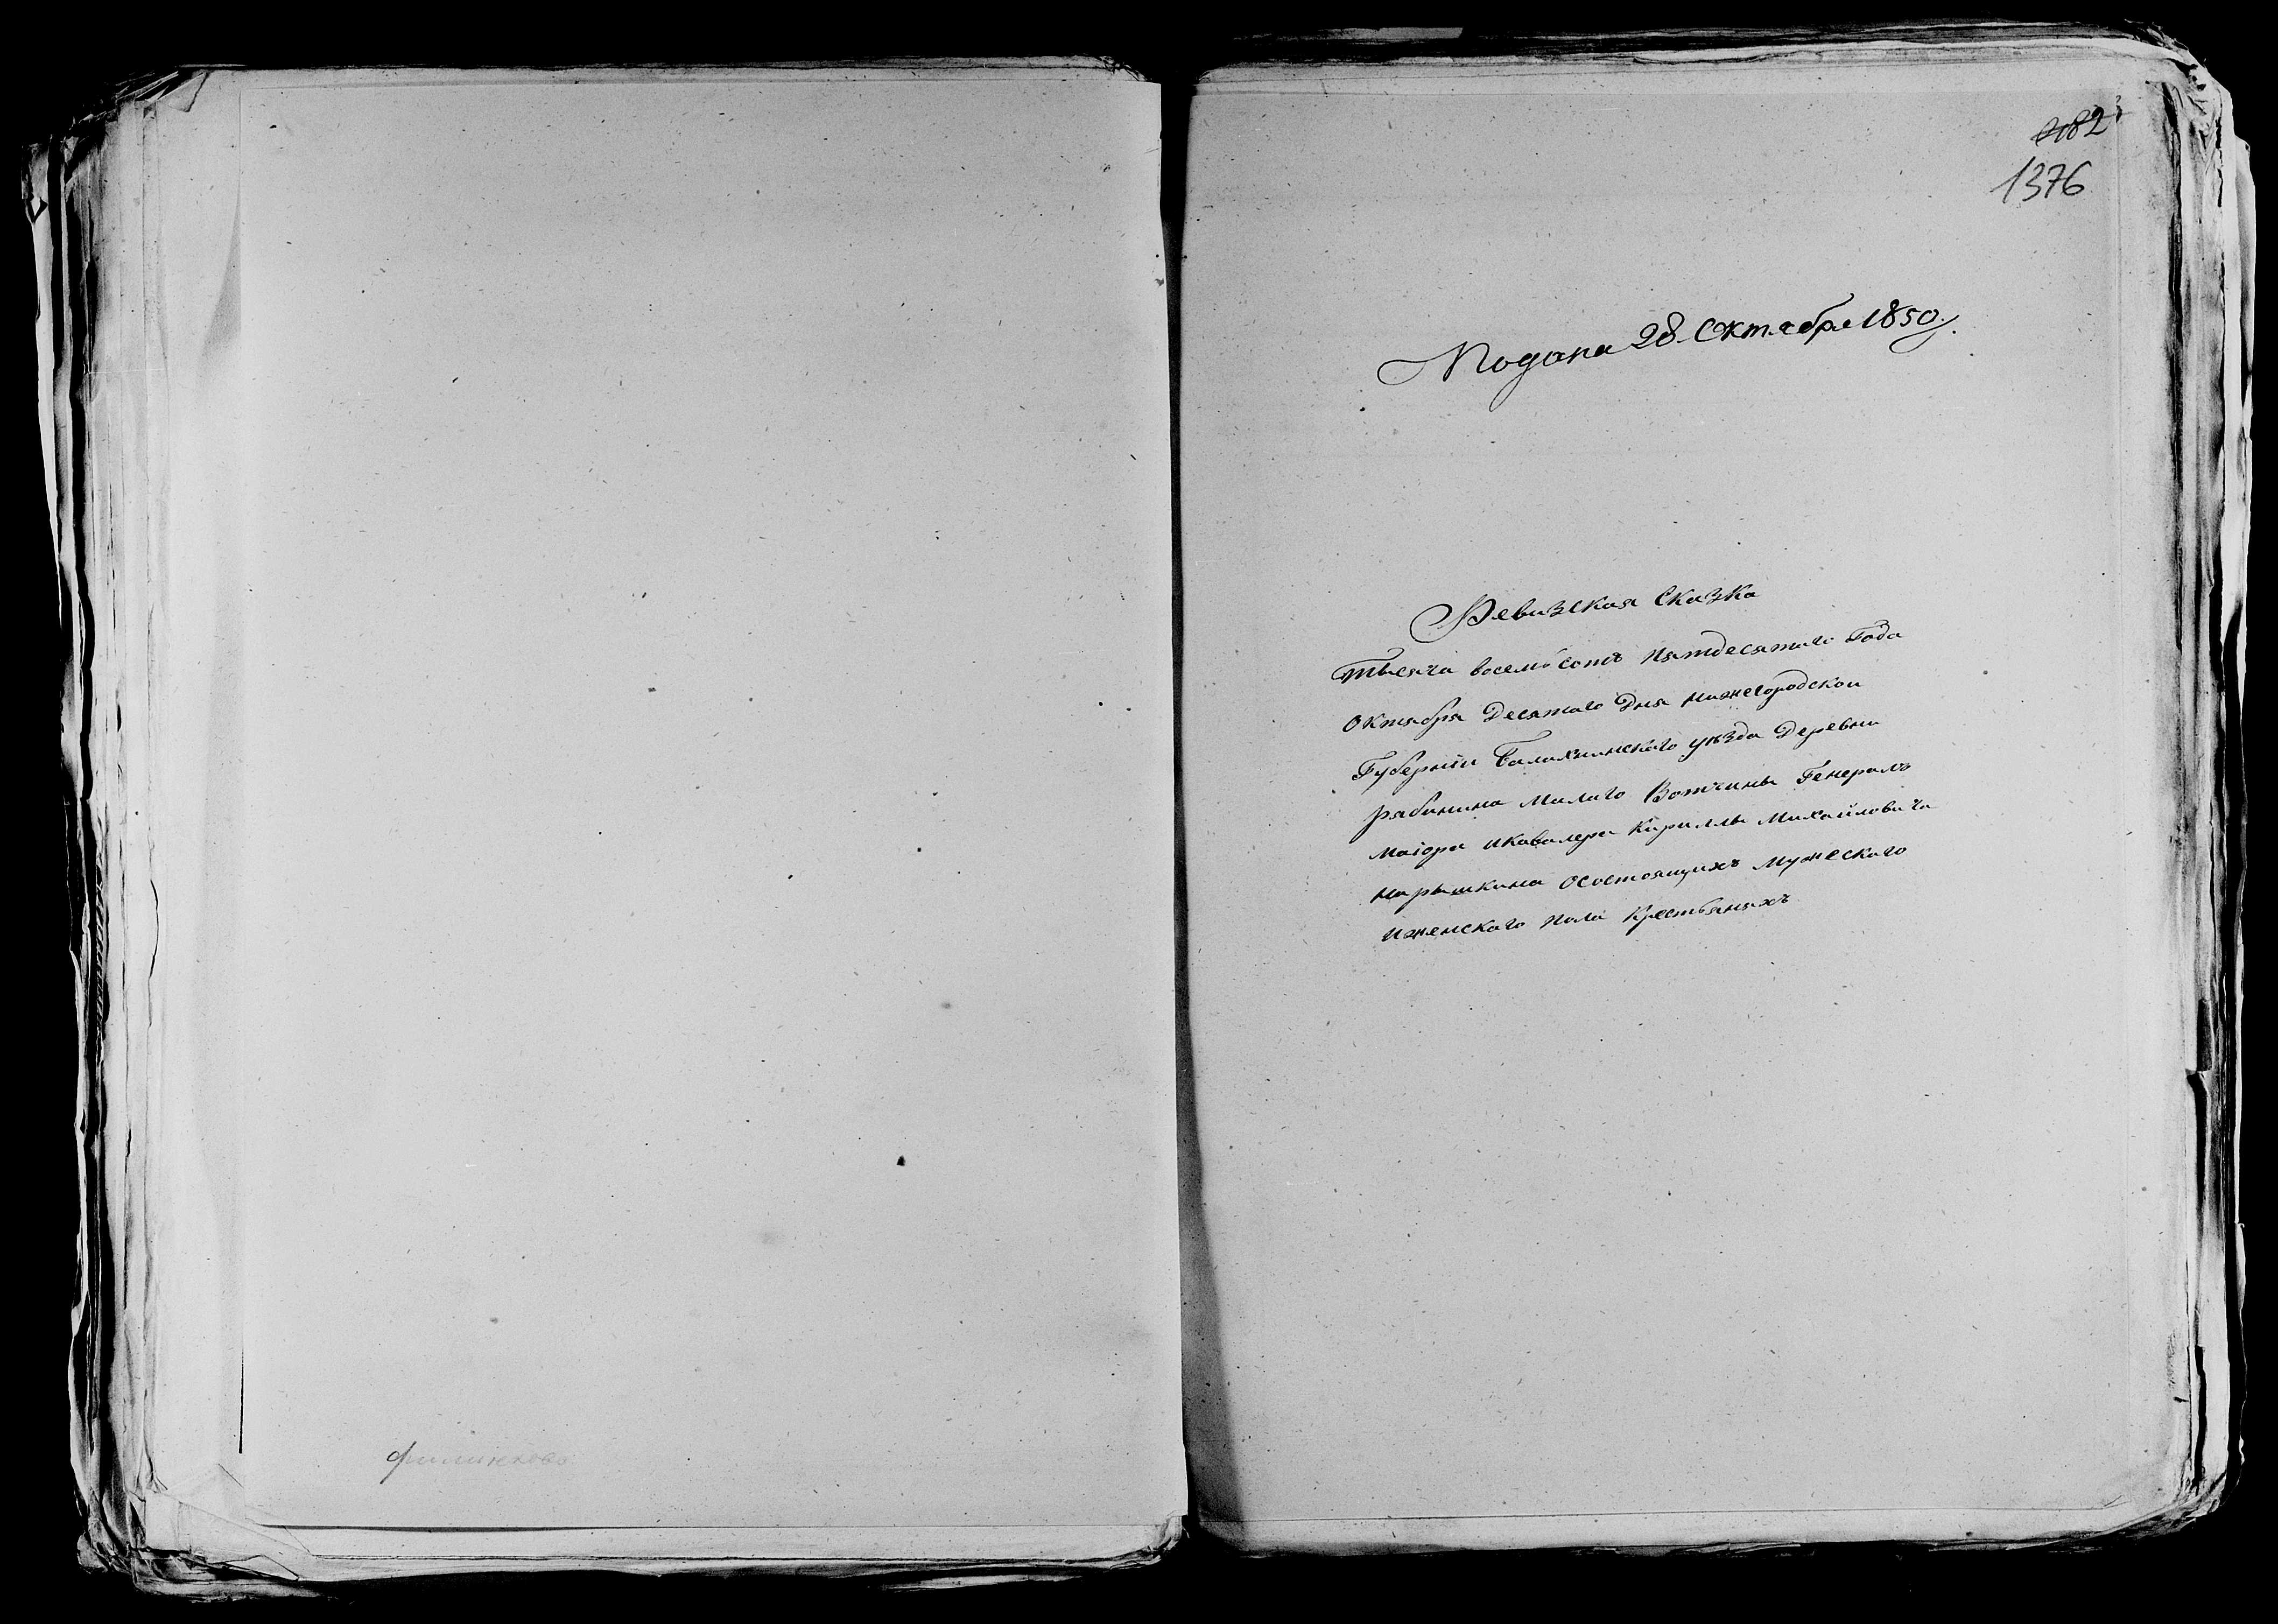 1376
Подана 28. Октября 1850.
Ревизская Сказка
тысяча восемьсотъ пятдесятаго Года
октября Десятаго Дня нижегородской
Губерніи Балахнинскаго уѣзда Деревни
рябинина Малаго Вотчины Генералъ
маіора икавалера Кириллы Михайловича
нарышкина осостоящихъ мужескаго
иженскаго пола крестьянахъ